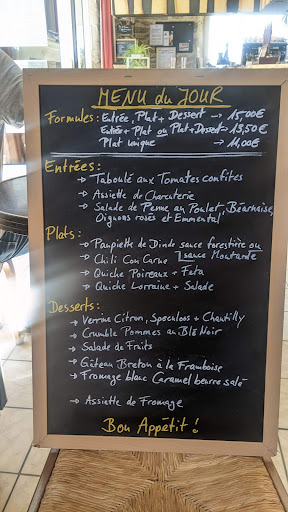 MENU du JOUR
Formules: Entrée, Plat + Dessert → 15,00€
Entrée + Plat ou Plat + Dessert → 13,50€
Plat unique → 11,00€
Entrées:
→ Taboulé aux Tomates confites
→ Assiette de Charcuterie
→ Salade de Penne au Poulet, Béarnaise,
Oignons rosés et Emmental
Plats:
→ Paupiette de Dinde sauce forestière ou
sauce Moutarde
→ Chili Con Carne
→ Quiche Poireaux + Feta
→ Quiche Lorraine + Salade
Desserts:
→ Verrine Citron, Speculoos + Chantilly
→ Crumble Pommes au Blé Noir
→ Salade de Fruits
→ Gâteau Breton à la Framboise
→ Fromage blanc Caramel beurre salé
→ Assiette de Fromage
Bon Appétit !